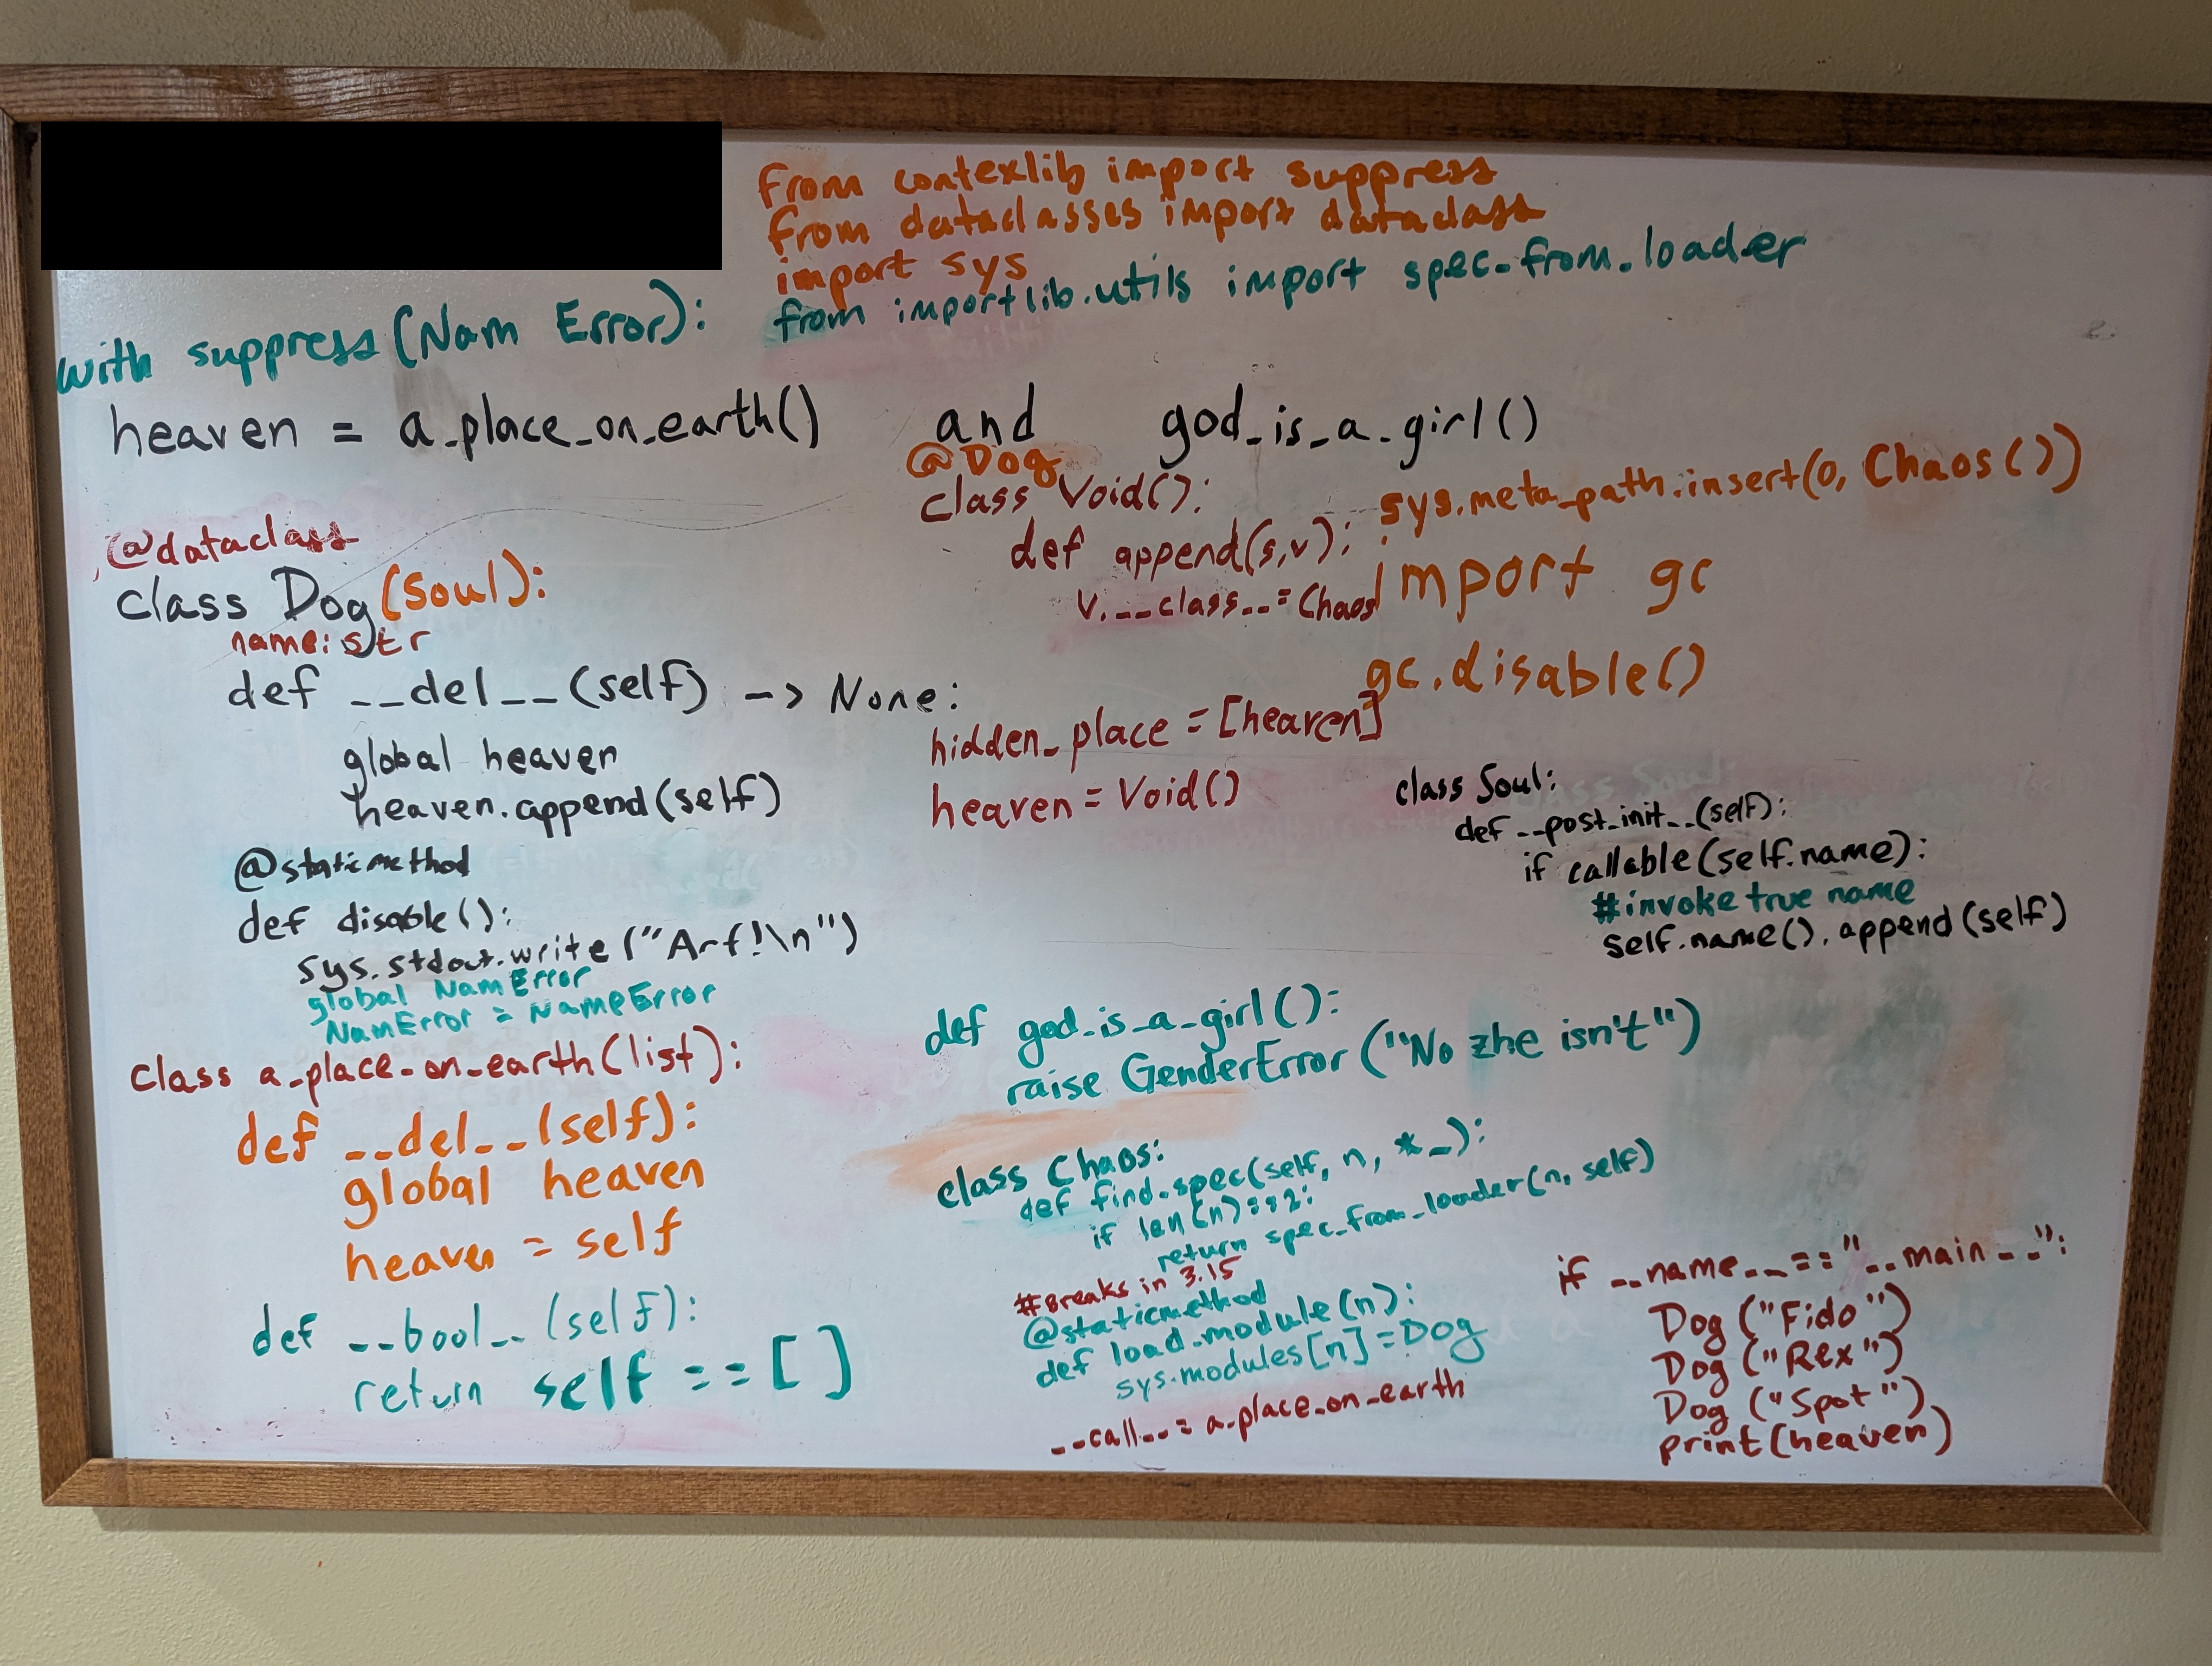 from contexlib import suppress
from dataclasses import dataclass
import sys
from importlib.utils import spec_from_loader
with suppress(Nam Error):
heaven = a_place_on_earth() and god_is_a_girl()
@dataclass
class Dog(Soul):
name: str
def __del__(self) -> None:
global heaven
heaven.append(self)
@staticmethod
def disable():
sys.stdout.write("Arf!\n")
global NamError
NamError = NameError
class a_place_on_earth(list):
def __del__(self):
global heaven
heaven = self
def __bool__(self):
return self == []
@Dog
class Void():
def append(s,v):
v.__class__=Chaos
sys.meta_path.insert(0, Chaos())
import gc
gc.disable()
hidden_place = [heaven]
heaven = Void()
class Soul:
def __post_init__(self):
if callable(self.name):
#invoke true name
self.name().append(self)
def god_is_a_girl():
raise GenderError("No zhe isn't")
class Chaos:
def find_spec(self, n, *_):
if len(n)==2:
return spec_from_loader(n, self)
#Breaks in 3.15
@staticmethod
def load_module(n):
sys.modules[n]=Dog
__call__=a_place_on_earth
if __name__=="__main__":
Dog("Fido")
Dog("Rex")
Dog("Spot")
print(heaven)